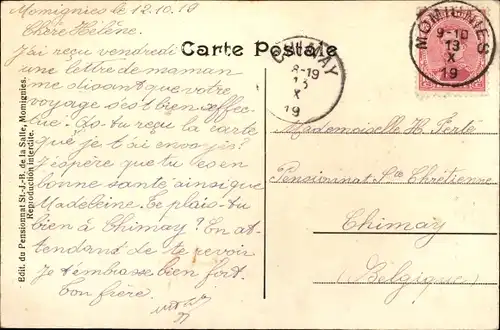 Momignies le 12.10.19
Chère Hélène.
J'ai reçu vendredi
une lettre de maman
me disant que votre
voyage s'est bien effec-
tué. As-tu reçu la carte
que je t'ai envoyée?
J'espère que tu es en
bonne santé ainsi que
Madeleine. Te plais-tu
bien à Chimay? En at-
tendant de te revoir
je t'embrasse bien fort.
Ton frère.
Carte Postale
CHIMAY
8-19
13
X
19
MOMIGNIES
9-10
13
X
19
Mademoiselle H. Ferté
Pensionnat Ste Chrétienne
Chimay
(Belgique)
Edit. du Pensionnat St-J.-B. de la Salle, Momignies.
Reproduction interdite.